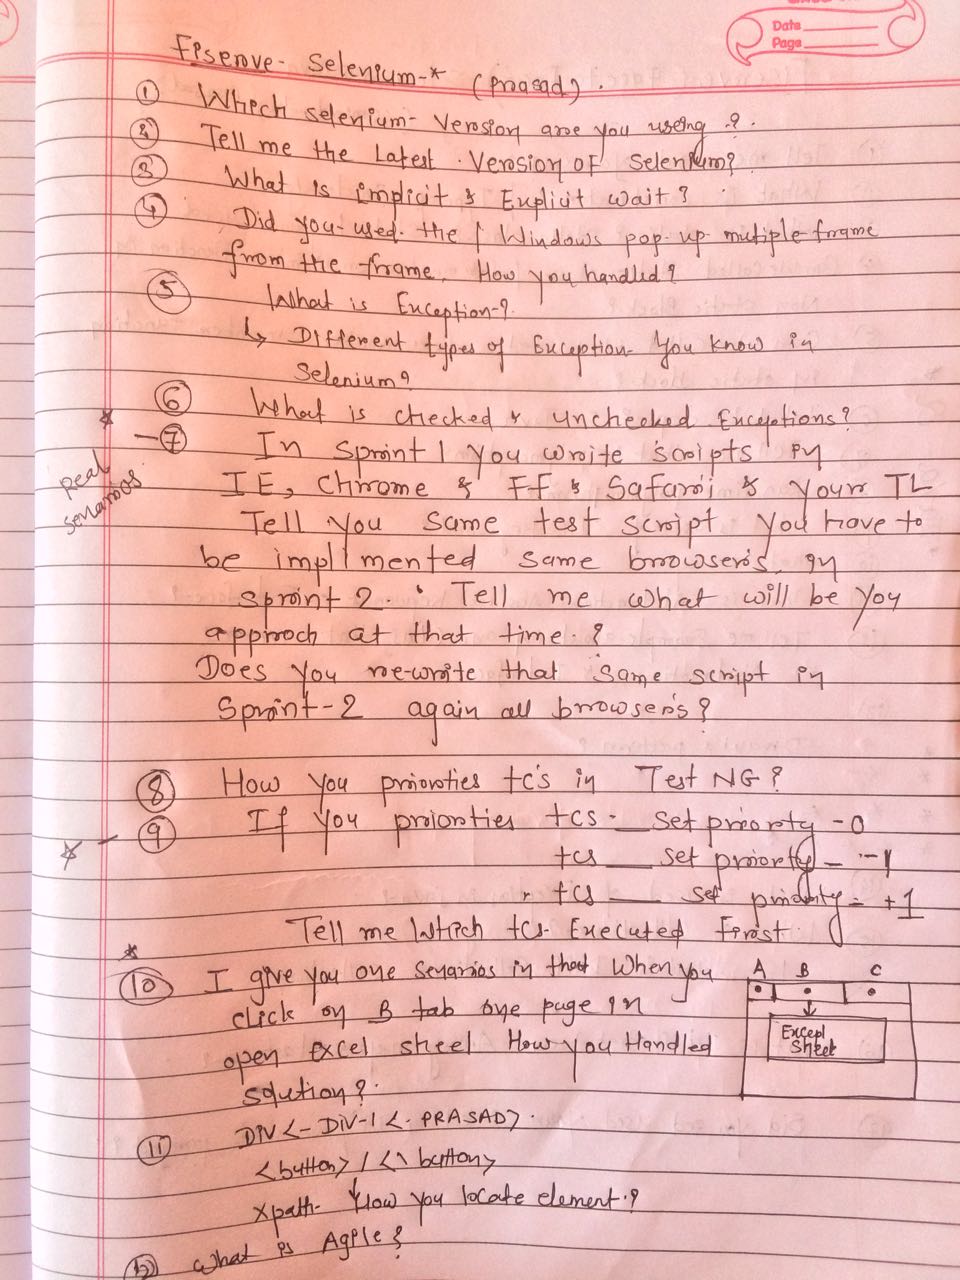 Date
Page
Fiserve- Selenium-* (Prasad).
① Which selenium- Version are you using ?.
② Tell me the Latest Version of Selenium?
③ What is implicit & Explicit wait?
④ Did you used the Windows pop-up mutiple frame
from the frame. How you handled?
⑤ What is Exception-?
↳ Different types of Exception You know in
Selenium?
⑥ What is checked & unchecked Exceptions?
* -⑦ In Sprint 1 you write scripts in
Real senarios
IE, Chrome & FF & Safari & your TL
Tell you same test script you have to
be implimented same browser's in
sprint 2. Tell me what will be you
approch at that time ?
Does you re-write that same script in
Sprint-2 again all browser's?
⑧ How you priorities tc's in Test NG?
* - ⑨ If you priorities tcs - set priorty - 0
tcs set priority - -1
tcs set priority - +1
Tell me Which tcs Executed First.
*
⑩ I give you one senarios in that When you
A B C
click on B tab one page in
open excel sheel How you Handled
Excel
Sheet
solution?
⑪ DIV <- DIV-1 <- PRASAD>.
<button> / <\ button>
xpath- How you locate element?
⑫ What is Agile?